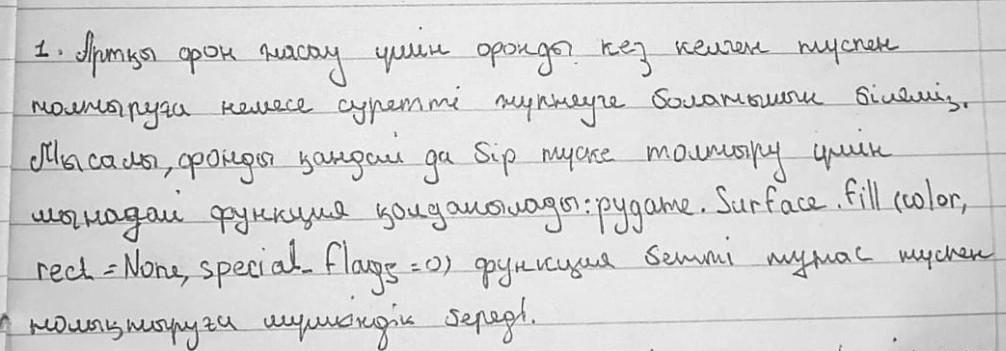 1. Артқы фон жасау үшін фонды кез келген түспен
толтыруға немесе суретті жүктеуге болатынын білеміз.
Мысалы, фонды қандай да бір түске толтыру үшін
мынадай функция қолданылады: pygame.Surface.fill (color,
rect = None, special_flags = 0) функция бетті тұтас түспен
толықтыруға мүмкіндік береді.